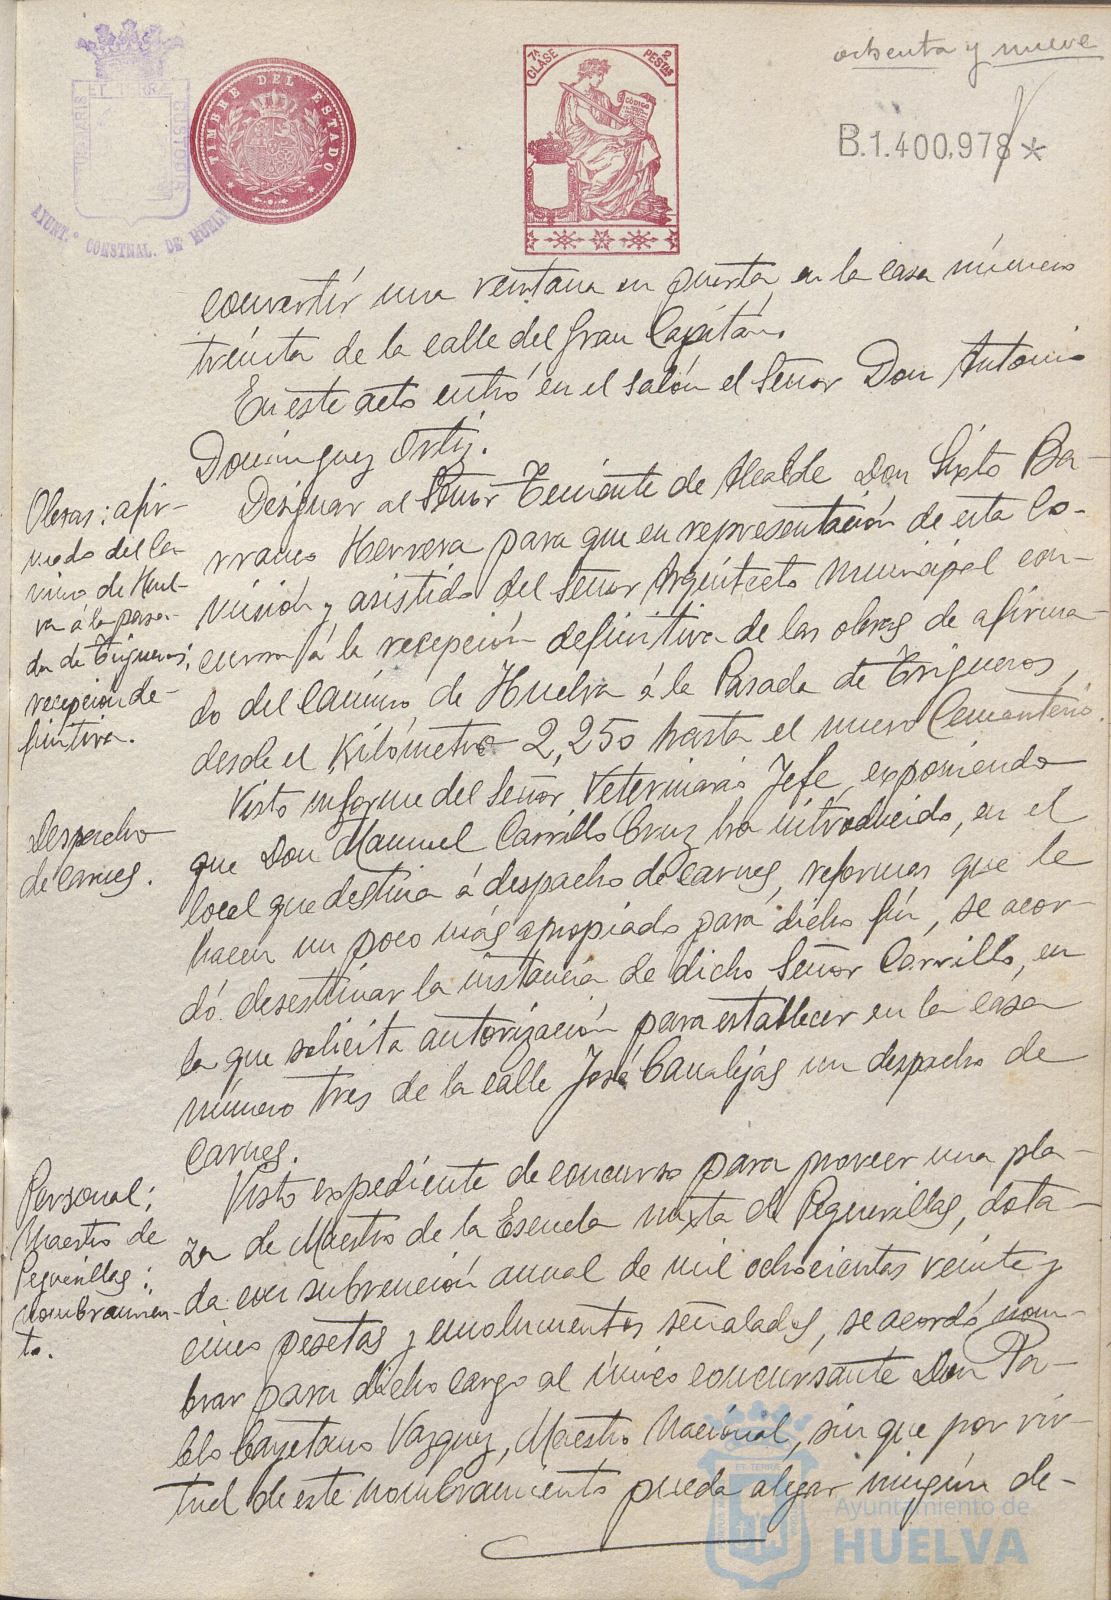 ochenta y nueve
TIMBRE DEL ESTADO
7ª CLASE
2 PESETAS
CÓDIGO
B.1.400,978 *
ET TERRÆ
CUSTODIA
AYUNT.º CONSTNAL. DE HUELVA
convertir una ventana en puerta en la casa número
treinta de la calle del Gran Capitán.
En este acto entró en el salón el Señor Don Antonio
Dominguez Ortiz.
Obras: afir-
mado del Ca-
mino de Huel-
va á la para-
da de Trigueros;
recepción de-
finitiva.
Designar al Señor Teniente de Alcalde Don Sixto Ba-
rranco Herrera para que en representación de esta Co-
misión y asistido del Señor Arquitecto municipal con-
curra á la recepción definitiva de las obras de afirma-
do del Camino de Huelva á la Parada de Trigueros,
desde el Kilómetro 2,250 hasta el nuevo Cementerio.
Despacho
de carnes.
Visto informe del Señor Veterinario Jefe, exponiendo
que Don Manuel Carrillo Cruz ha introducido, en el
local que destina á despacho de carnes, reformas que le
hacen un poco más apropiado para dicho fin, se acor-
dó desestimar la instancia de dicho Señor Carrillo, en
la que solicita autorización para establecer en la casa
número tres de la calle José Canalejas un despacho de
carnes.
Personal;
Maestro de
Peguerillas;
nombramien-
to.
Visto expediente de concurso para proveer una pla-
za de Maestro de la Escuela mixta de Peguerillas, dota-
da con subvención anual de mil ochocientas veinte y
cinco pesetas y emolumentos señalados, se acordó nom-
brar para dicho cargo al único concursante Don Pa-
blo Cayetano Vazquez, Maestro Nacional, sin que por vir-
tud de este nombramiento pueda alegar ningún de-
Ayuntamiento de
HUELVA